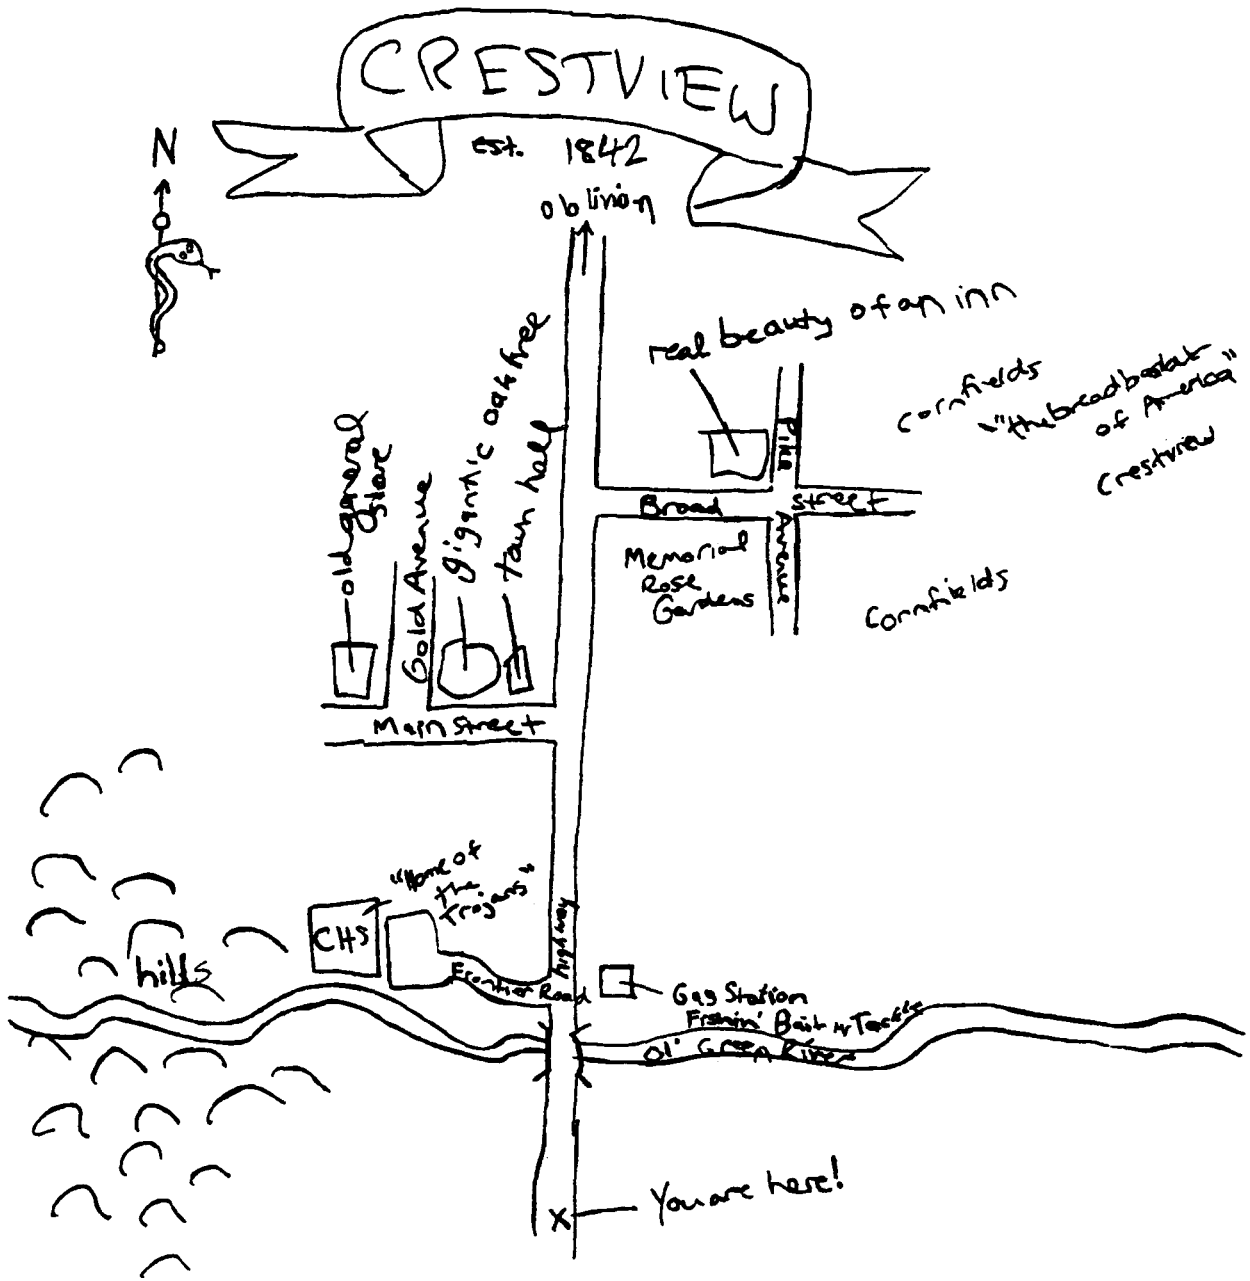 CRESTVIEW
Est. 1842
N
oblivion
real beauty of an inn
cornfields
"the breadbasket
of America"
Crestview
old general
store
Gold Avenue
gigantic oak tree
town hall
Pike
Avenue
Broad Street
Memorial
Rose
Gardens
Cornfields
Main Street
"Home of
the
Trojans"
CHS
hills
highway
Frontier Road
Gas Station
Fishin' Bait & Tackle
Ol' Green River
X
You are here!